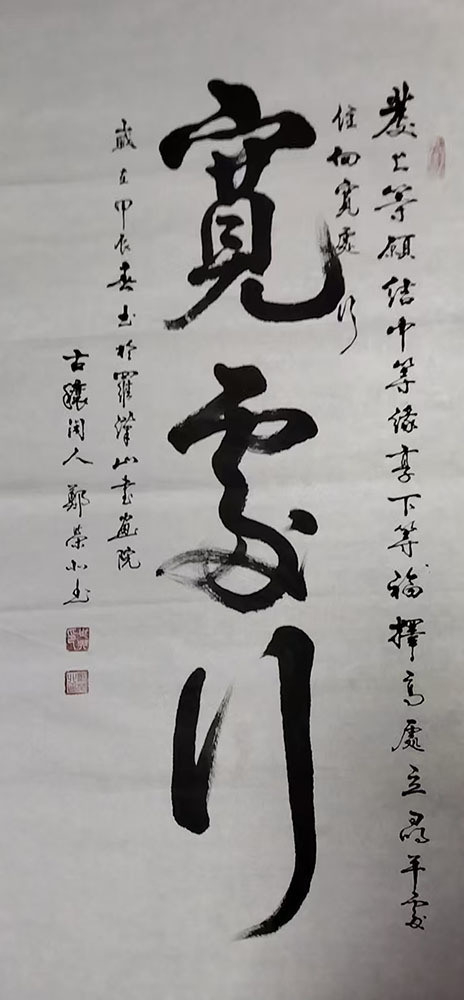 發上等願結中等緣享下等福擇高處立尋平處
住向寬處行
寬處行
歲在甲辰春書於羅浮山書畫院
古穰閑人鄭榮書